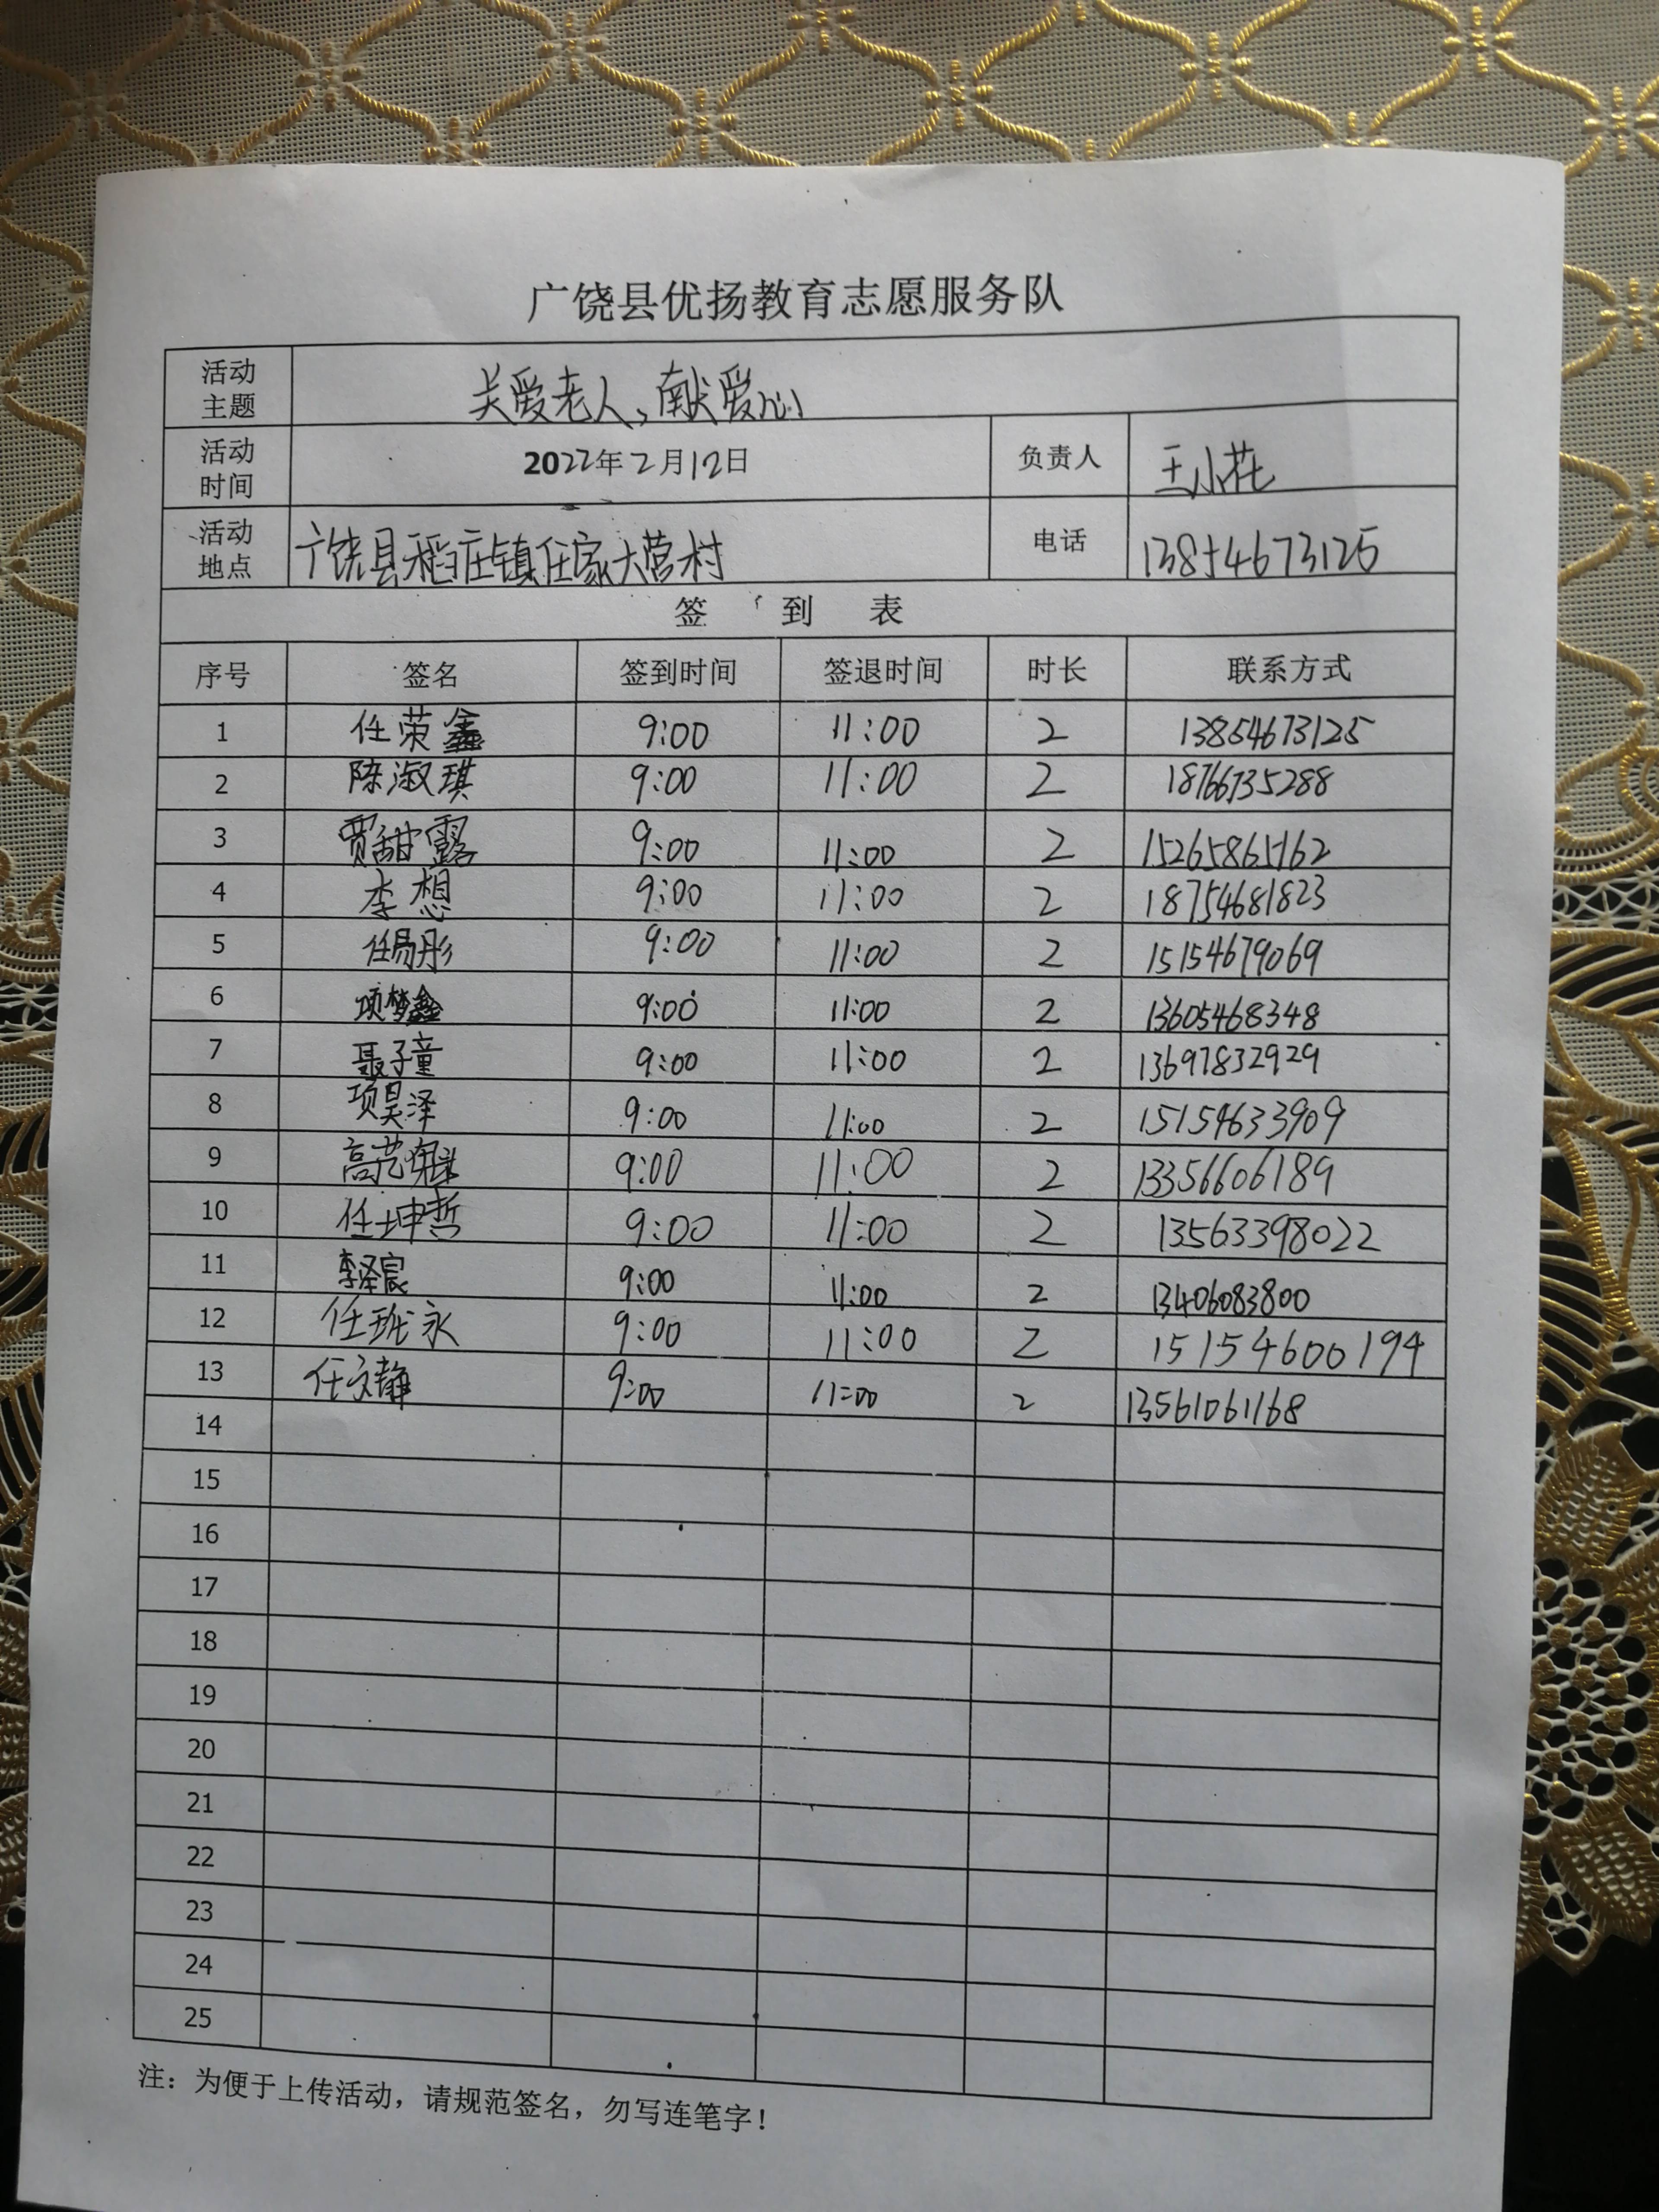 广饶县优扬教育志愿服务队
活动主题 关爱老人、献爱心
活动时间 2022年2月12日 负责人 王小花
活动地点 广饶县稻庄镇任家大营村 电话 13854673125
签到表
序号 签名 签到时间 签退时间 时长 联系方式
1 任荣鑫 9:00 11:00 2 13854673125
2 陈淑琪 9:00 11:00 2 18766735288
3 贾甜露 9:00 11:00 2 15265865162
4 李想 9:00 11:00 2 18754681823
5 任易彤 9:00 11:00 2 15154679069
6 项梦鑫 9:00 11:00 2 13605468348
7 聂子童 9:00 11:00 2 13697832929
8 项昊泽 9:00 11:00 2 15154633909
9 高艺 9:00 11:00 2 13356606189
10 任坤哲 9:00 11:00 2 13563398022
11 李泽宸 9:00 11:00 2 13406083800
12 任珑永 9:00 11:00 2 15154600194
13 任文静 9:00 11:00 2 13561061168
14
15
16
17
18
19
20
21
22
23
24
25
注：为便于上传活动，请规范签名，勿写连笔字！